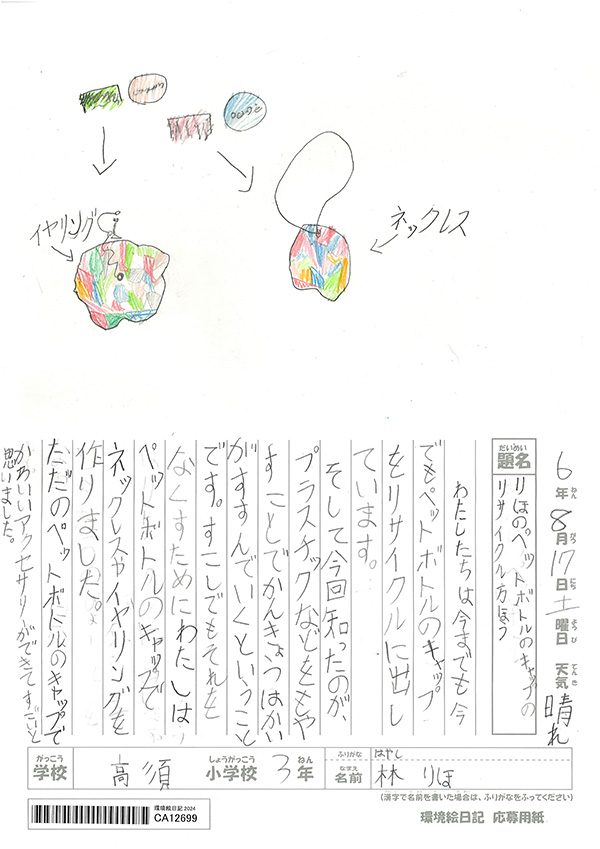 イヤリング
ネックレス
6年8月17日土曜日 天気晴れ
ねん がつ にち ようび てんき
だいめい
題名
りほのペットボトルのキャップの
リサイクル方ほう
わたしたちは今までも今
でもペットボトルのキャップ
をリサイクルに出し
ています。
そして今回知ったのが、
プラスチックなどをもや
すことでかんきょうはかい
がすすんでいくということ
です。すこしでもそれを
なくすためにわたしは
ペットボトルのキャップで
ネックレスやイヤリングを
作りました。
ただのペットボトルのキャップで
かわいいアクセサリーができてすごいと
思いました。
がっこう
学校
高須
しょうがっこう
小学校
3年
ねん
ふりがな
はやし
なまえ
名前
林 りほ
(漢字で名前を書いた場合は、ふりがなをふってください)
環境絵日記 2024
CA12699
環境絵日記 応募用紙